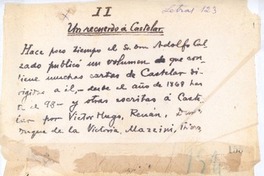 II
Letras 123
Un recuerdo á Castelar.
Hace poco tiempo el señor Adolfo Cal
zado publicó un volumen de que con
tiene muchas cartas de Castelar di
rigidas a él, - desde el año de 1868 has
ta el 98 - y otras escritas á Caste
lar por Victor Hugo, Renán, Du
que de la Victoria, Mazzini,